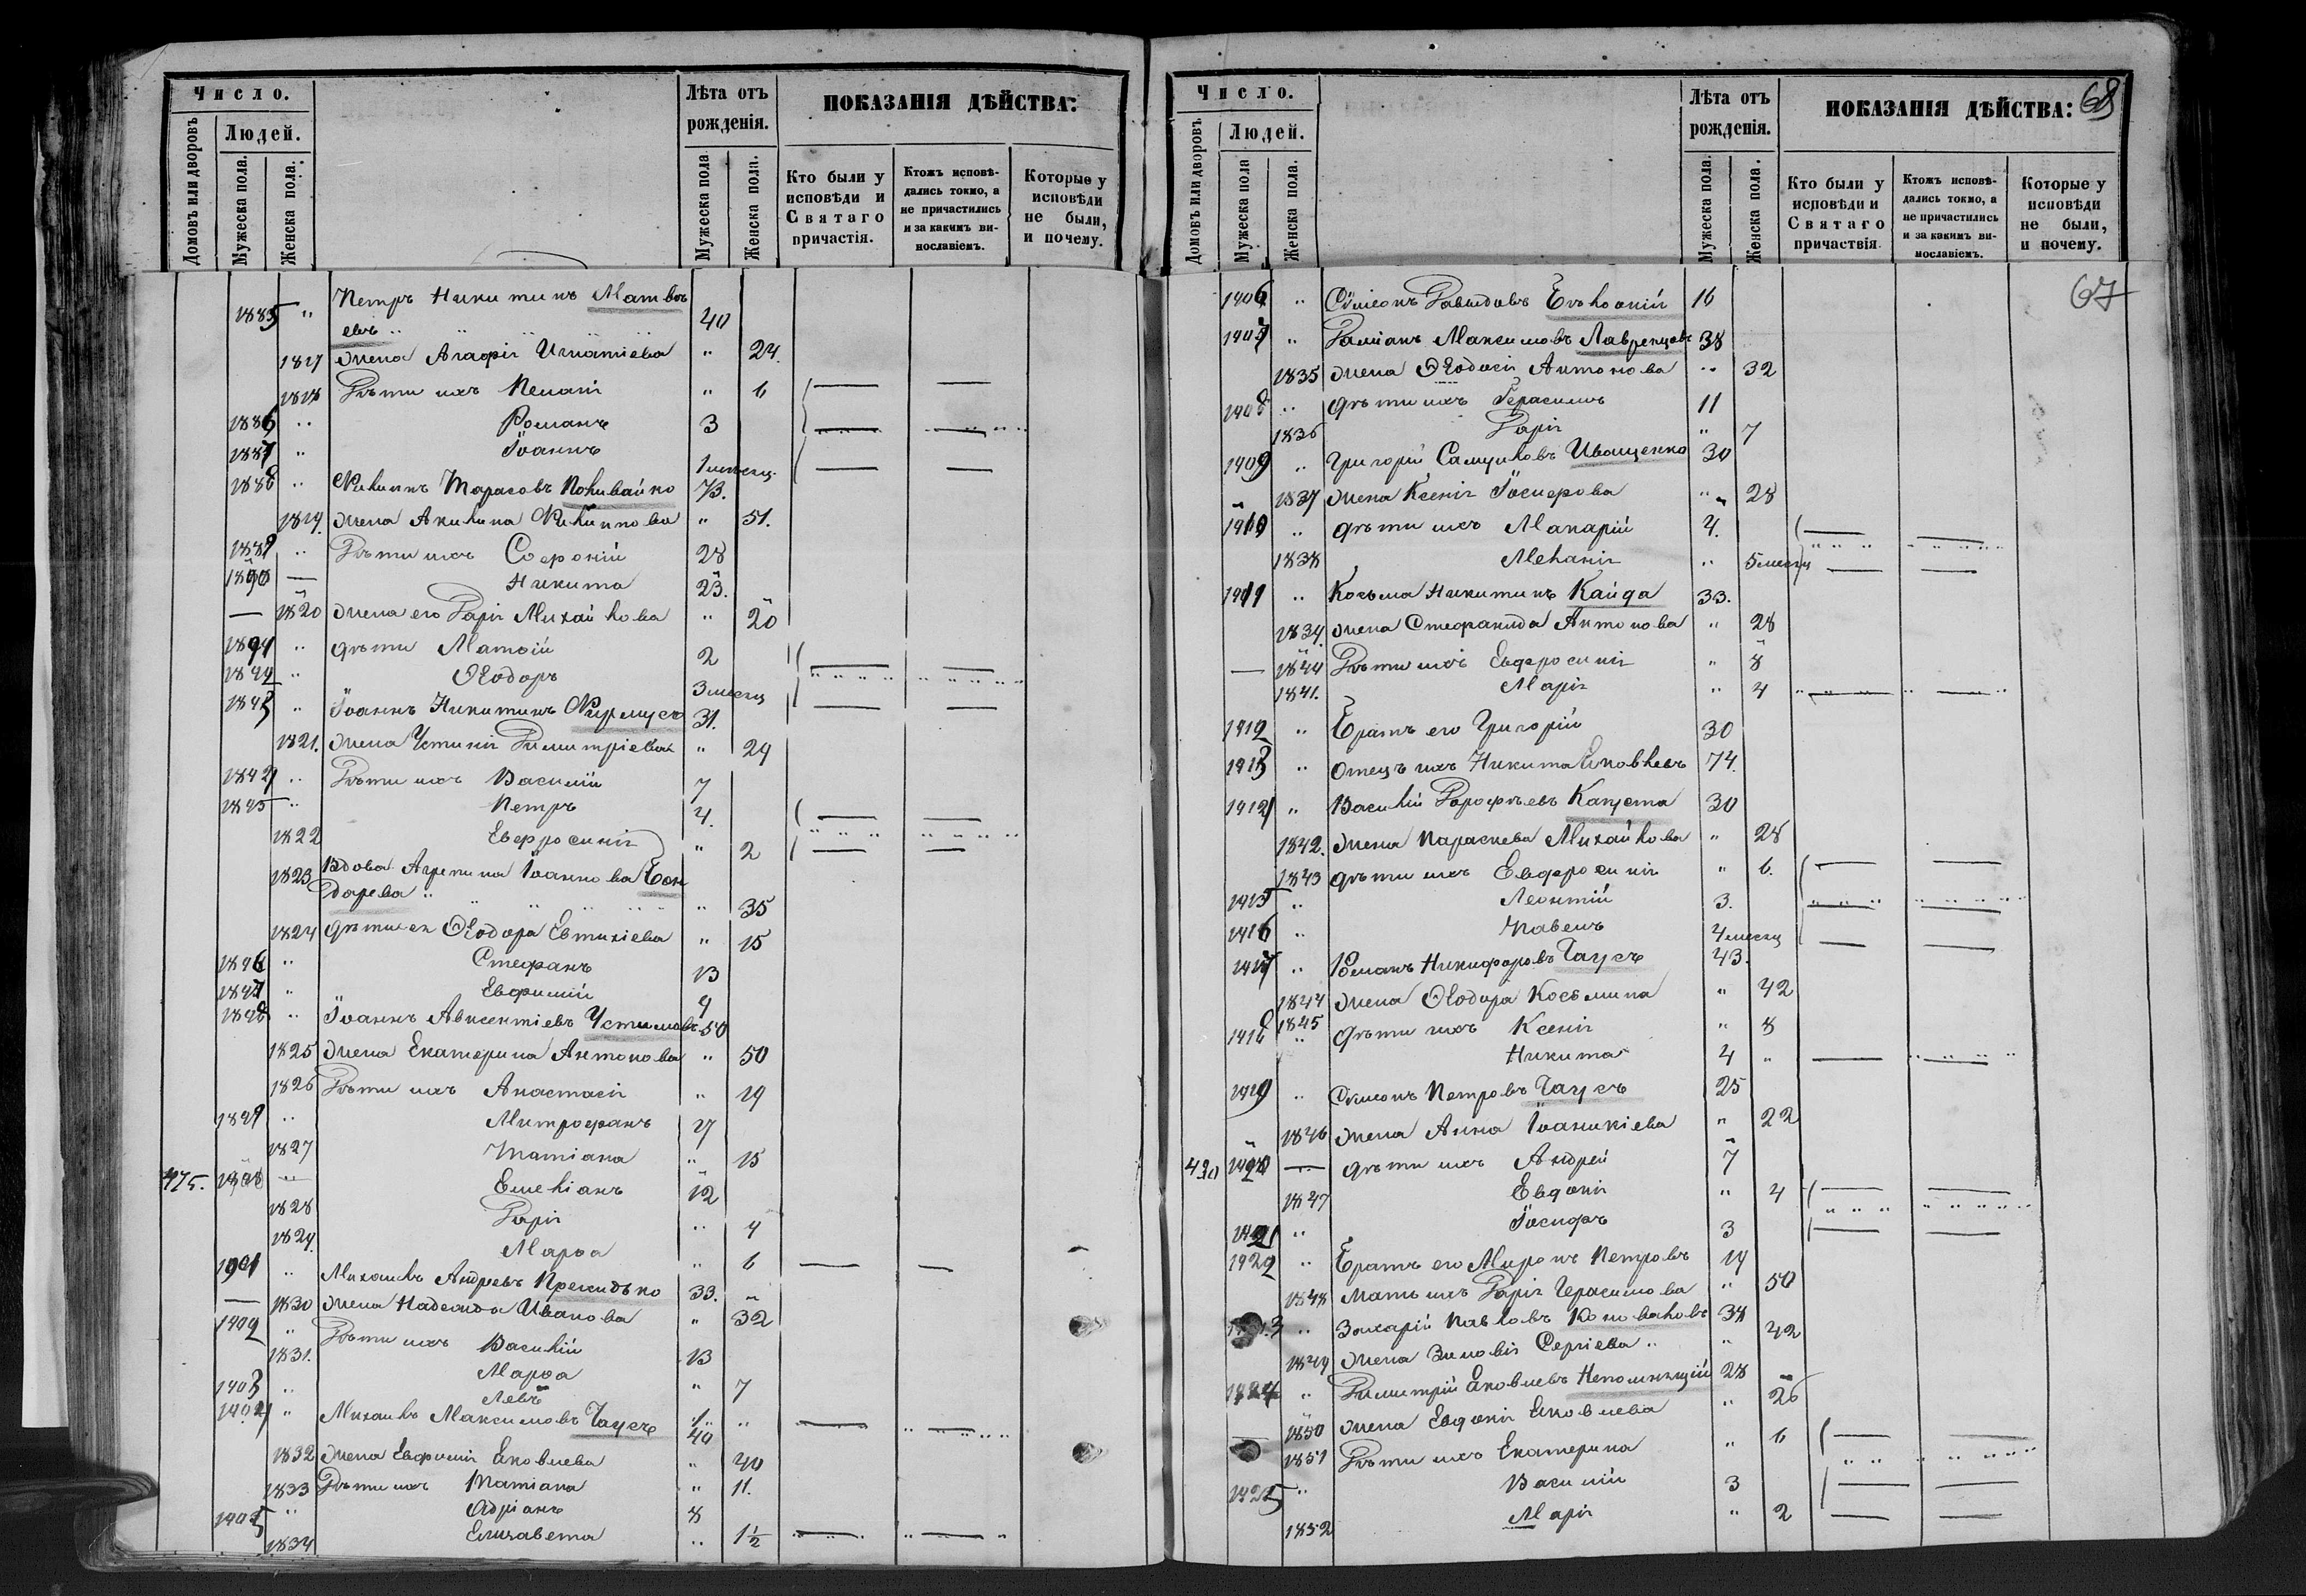 Число.
Лѣта отъ рожденія.
ПОКАЗАНІЯ ДѢЙСТВА:
Домовъ или дворовъ
Людей.
Мужеска пола.
Женска пола.
Мужеска пола
Женска пола.
Кто были у исповѣди и Святаго причастія.
Ктожъ исповѣдались токмо, а не причастились и за какимъ винославіемъ.
Которые у исповѣди не были, и почему.
1885 " Петръ Никитинъ Матвѣ
евъ " 40
1817 жена Агафія Игнатіева " 24.
1818 Дѣти ихъ Пелагія " 6
1886 " Романъ 3
1887 " Іоаннъ 1 месяц
1888 " Филиппъ Тарасовъ Поливайко 73.
1819. жена Акилина Филиппова " 51.
1889 " Дѣти ихъ Софроній 28
1890 — Никита 23.
— 1820 жена его Дарія Михайлова " 20
1891 " дѣти Матѳій 2
1892 " Ѳеодоръ 3 месяц
1893 " Іоаннъ Никитинъ 31.
1821. жена Устинія Димитріева " 29
1894 " Дѣти ихъ Василій 7
1895 " Петръ 4.
1822 Евфросинія " 2
1823 Вдова Агрепина Іоаннова Бон
дарева " " 35
1824 дѣти ея Ѳеодора Евтихіева " 15
1896 " Стефанъ 13
1897 " Евфимій 9
1898 " Іоаннъ Авксентіевъ Устимовъ 50
1825 жена Екатерина Антонова " 50
1826 Дѣти ихъ Анастасія " 19
1899 " Митрофанъ 17
1827 Татіана " 15
475. Емеліанъ 12
1828 Дарія " 9
1829. Марѳа " 6
1901 " Михаилъ Андреевъ 33.
— 1830 жена Надежда Иванова " 32
1902 " Дѣти ихъ Василій 13
1831. Марѳа " 7
1903 " Левъ 1 "
1904 " Михаилъ Максимовъ Чаусъ 40
1832 жена Евфимія Яковлева " 40
1833 Дѣти ихъ Татіана " 11.
1905 " Адріанъ 8
1834 Елисавета " 1½
Число.
Лѣта отъ рожденія.
ПОКАЗАНІЯ ДѢЙСТВА:
68
Домовъ или дворовъ
Людей.
Мужеска пола
Женска пола.
Мужеска пола.
Женска пола.
Кто были у исповѣди и Святаго причаствія
Ктожъ исповѣдались токмо, а не причастились и за какимъ винославіемъ.
Которые у исповѣди не были, и почему.
67
1906 " Симеонъ Давыдовъ 16
1907 " Даміанъ Максимовъ Лавренцовъ 38
1835 жена Ѳеодосія Антонова " 32
1908 " дѣти ихъ Герасимъ 11
1836 Дарія " 7
1909 " Григорій Самуиловъ Иващенко 30
1837 жена Ксенія Іосифова " 28
1910 " дѣти ихъ Макарій 4.
1838 Меланія " 5 месяц
1911 " Косьма Никитинъ Кайда 33.
1839. жена Стефанида Антонова " 28
— 1840 Дѣти ихъ Евфросинія " 8
1841. Марія " 4
1912 " Братъ его Григорій 30
1913 " Отецъ ихъ Никита Яковлевъ 74.
1914 " Василій Дорофѣевъ Капуста 30
1842. жена Параскева Михайлова " 28
1843 дѣти ихъ Евфросинія " 6.
1915 " Леонтій 3.
1916 " Павелъ 4 месяц
1917 " Романъ Никифоровъ Чаусъ 43.
1844 жена Ѳеодора Косьмина " 42
1918 1845 дѣти ихъ Ксенія " 8
Никита 4 "
1919 " Симеонъ Петровъ Чаусъ 25
1846 жена Анна Іоаникіева " 22
480 1920 — дѣти ихъ Андрей 7
1847 Евдокія " 4
1921 " Іосифъ 3
1922 " Братъ его Миронъ Петровъ 19
1848 мать ихъ Дарія Герасимова " 50
" Захарій Павловъ Коноваловъ 38
1849 жена Зиновія Сергіева " " 42
1924 " Димитрій Яковлевъ Непомнящій 28
— 1850 жена Евдокія Яковлева " 26
1851 Дѣти ихъ Екатерина " 6
1925 " Василій 3
1852 Марія " 2